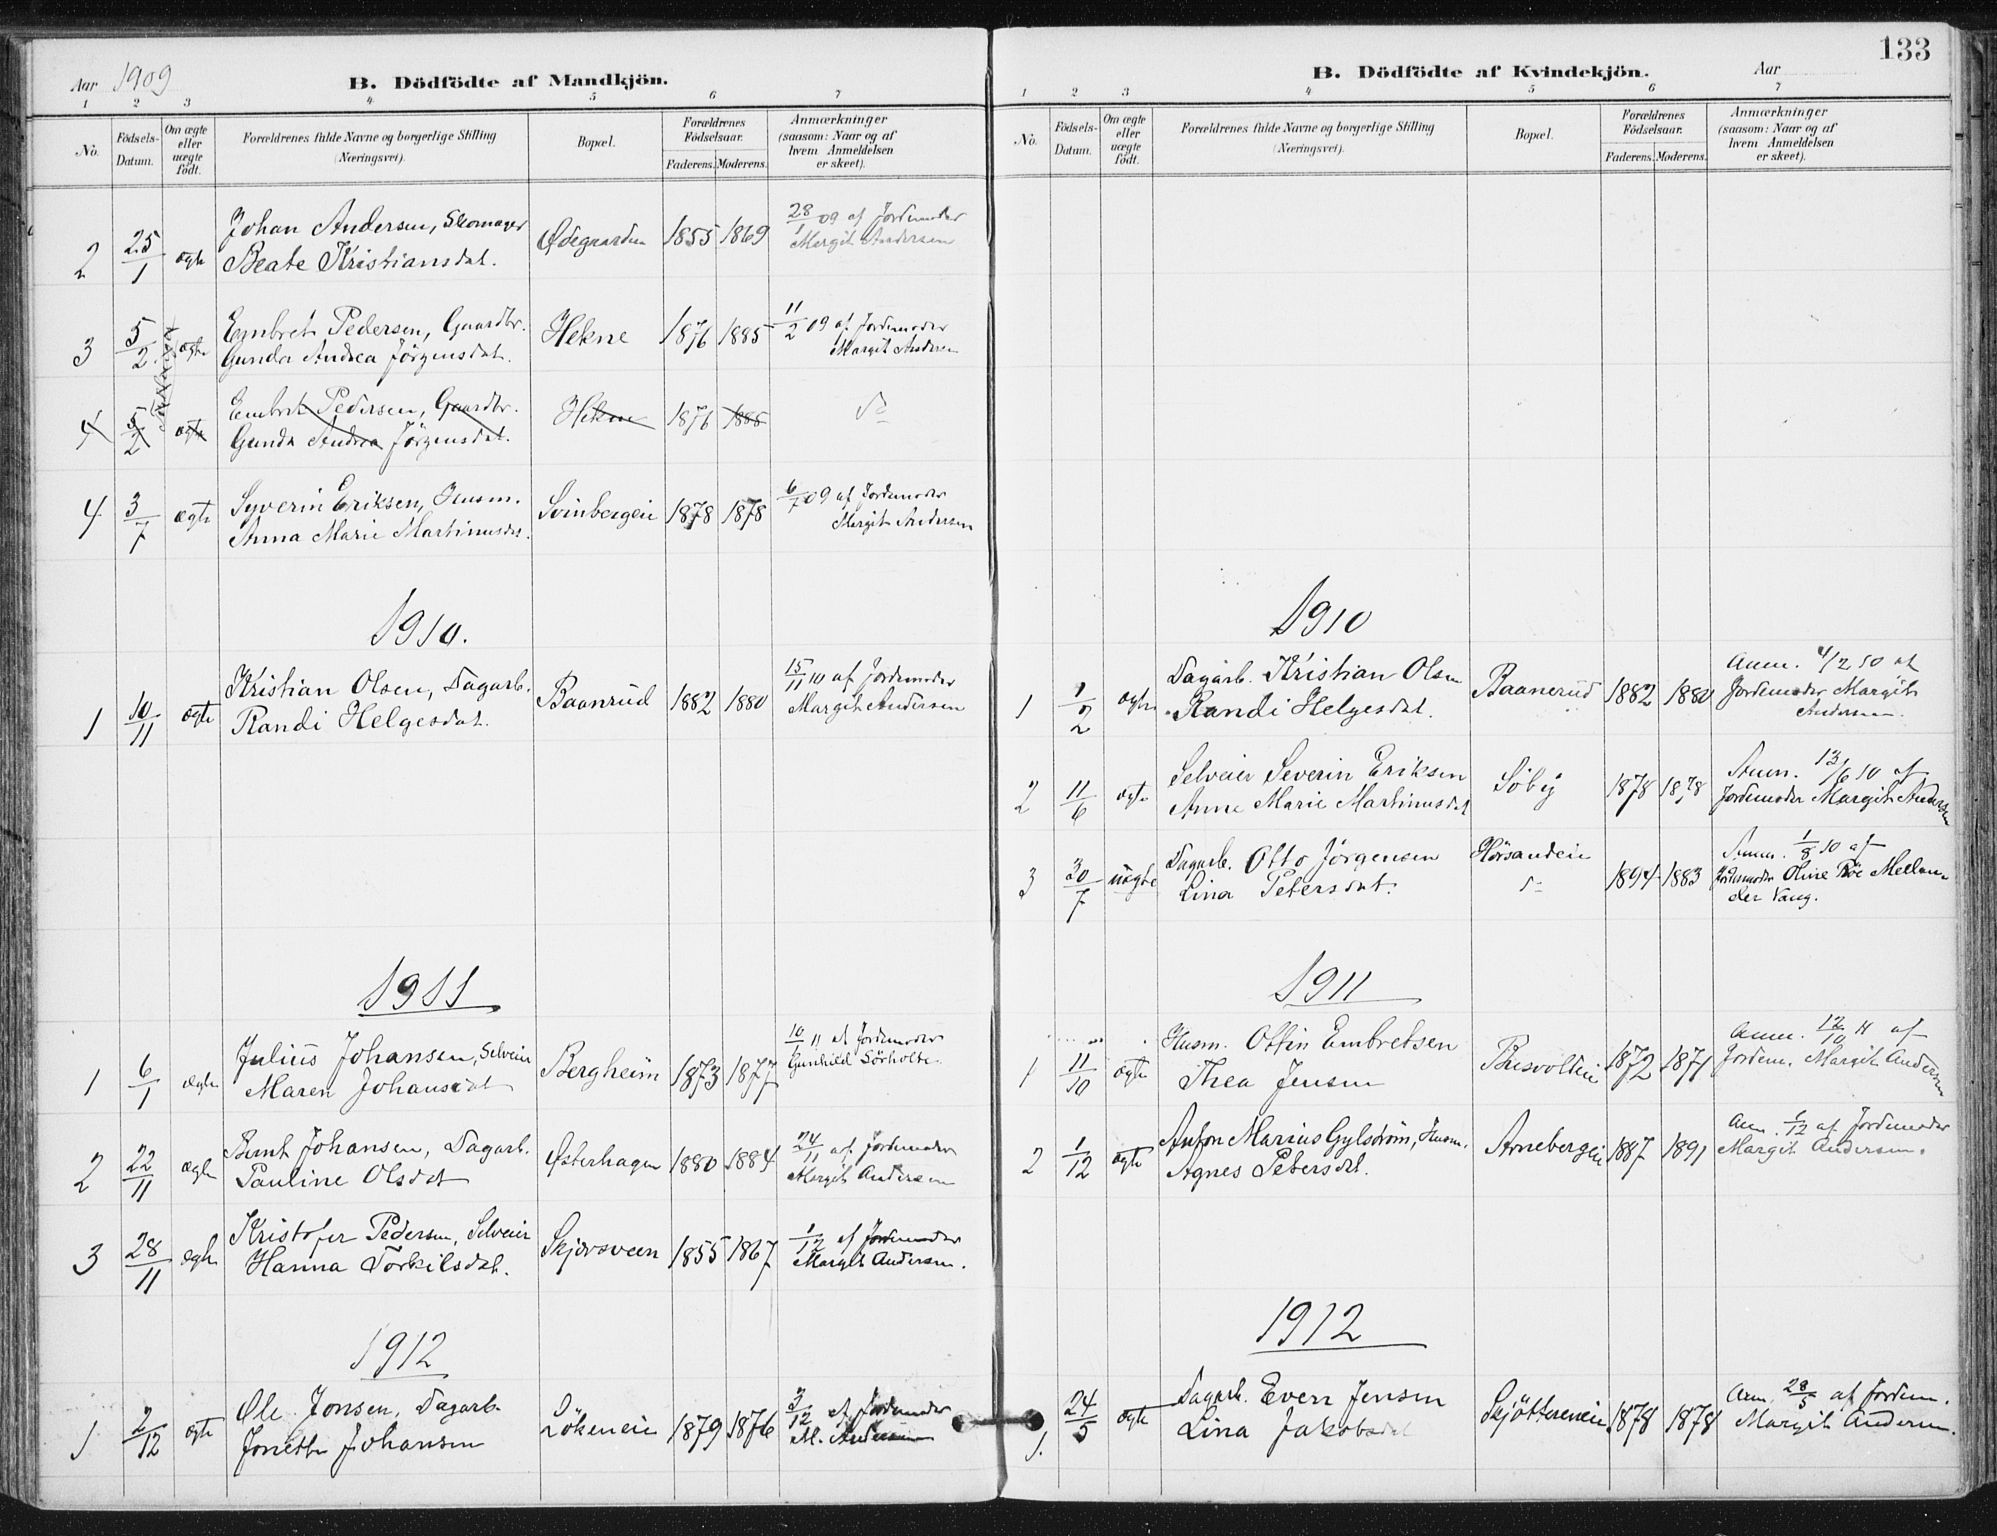 Aar 1909
B. Dödfödte af Mandkjön.
1 2 3 4 5 6 7
No.
Födsels-Datum.
Om ægte eller uægte födt.
Forældrenes fulde Navne og borgerlige Stilling (Næringsvei).
Bopæl.
Forældrenes Födselsaar.
Faderens. Moderens.
Anmærkninger (saasom: Naar og af hvem Anmeldelsen er skeet).
2 25/1 ægte Johan Andersen, Skomager Ødegaarden 1855 1869 28/1 09 af Jordemoder
Beate Kristiansdat. Margit Andersen
3 5/2 ægte Embret Pedersen, Gaardbr. Hekne 1876 1885 11/2 09 af Jordemoder
Gunda Andrea Jörgensdat. Margit Andersen
4 5/2 ægte Embret Pedersen, Gaardbr. Hekne 1876 1885 do
Gunda Andrea Jörgensdat.
4 3/7 ægte Syverin Eriksen, Husm. Svinbergeie 1878 1878 6/7 09 af Jordemoder
Anna Marie Martinusdat. Margit Andersen
1910.
1 10/11 ægte Kristian Olsen, Dagarb. Baanrud 1882 1880 15/11 10 af Jordemoder
Randi Helgesdat. Margit Andersen
1911
1 6/1 ægte Julius Johansen, Selveier Bergheim 1873 1877 10/1 11 af Jordemoder
Maren Johansdat Gunhild Sörholte.
2 22/11 ægte Bernt Johansen, Dagarb. Østerhagen 1880 1884 24/11 af Jordemoder
Pauline Olsdat Margit Andersen
3 28/11 ægte Kristofer Pedersen, Selveier Skjørsveen 1855 1867 1/12 af Jordemoder
Hanna Torkilsdat. Margit Andersen.
1912
1 2/12 ægte Ole Jonsen, Dagarb. Lökeneie 1879 1876 3/12 af Jordemoder
Jonette Johansen M. Andersen
133
B. Dödfödte af Kvindekjön.
Aar
1 2 3 4 5 6 7
No.
Födsels-Datum.
Om ægte eller uægte födt.
Forældrenes fulde Navne og borgerlige Stilling (Næringsvei).
Bopæl.
Forældrenes Födselsaar.
Faderens. Moderens.
Anmærkninger (saasom: Naar og af hvem Anmeldelsen er skeet).
1910
1 1/2 ægte Dagarb. Kristian Olsen Baanerud 1882 1880 Anm. 4/2 10 af
Randi Helgesdat. Jordemoder Margit
Andersen.
2 11/6 ægte Selveier Severin Eriksen Söby 1878 1878 Anm. 13/6 10 af
Anne Marie Martinusdat Jordemoder Margit Andersen
3 30/7 uægte Dagarb. Otto Jörgensen Horsandeie 1894 1883 Anm. 1/8 10 af
Lina Petersdat. do Jordemoder Oline Röe Mellan-
der Vang.
1911
1 11/10 ægte Husm. Ottin Embretsen 1872 1871 Anm. 12/10 11 af
Thea Jensen Jordem. Margit Andersen
2 1/12 ægte Anton Marius Gylström, Husm. Arnebergeie 1887 1891 Anm. 1/12 af Jordemoder
Agnes Petersdat. Margit Andersen.
1912
1. 24/5 ægte Dagarb. Even Jensen Skjöttereneie 1878 1878 Anm. 28/5 af Jordem.
Lina Jakobsdat Margit Andersen.